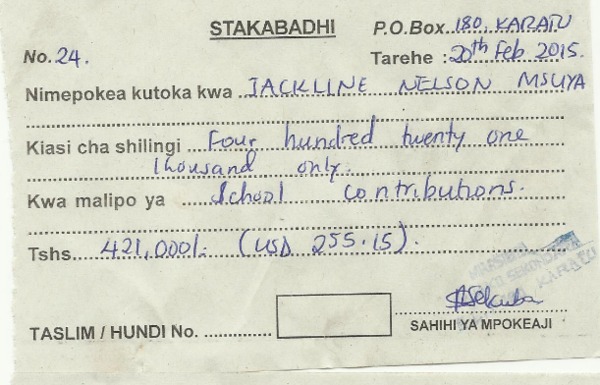 STAKABADHI
P.O.Box 180, KARATU
No. 24.
Tarehe : 20th Feb 2015.
Nimepokea kutoka kwa JACKLINE NELSON MSUYA
Kiasi cha shilingi Four hundred twenty one
thousand only.
Kwa malipo ya School contributions.
Tshs. 421,000/- (USD 255.15).
TASLIM / HUNDI No.
SAHIHI YA MPOKEAJI